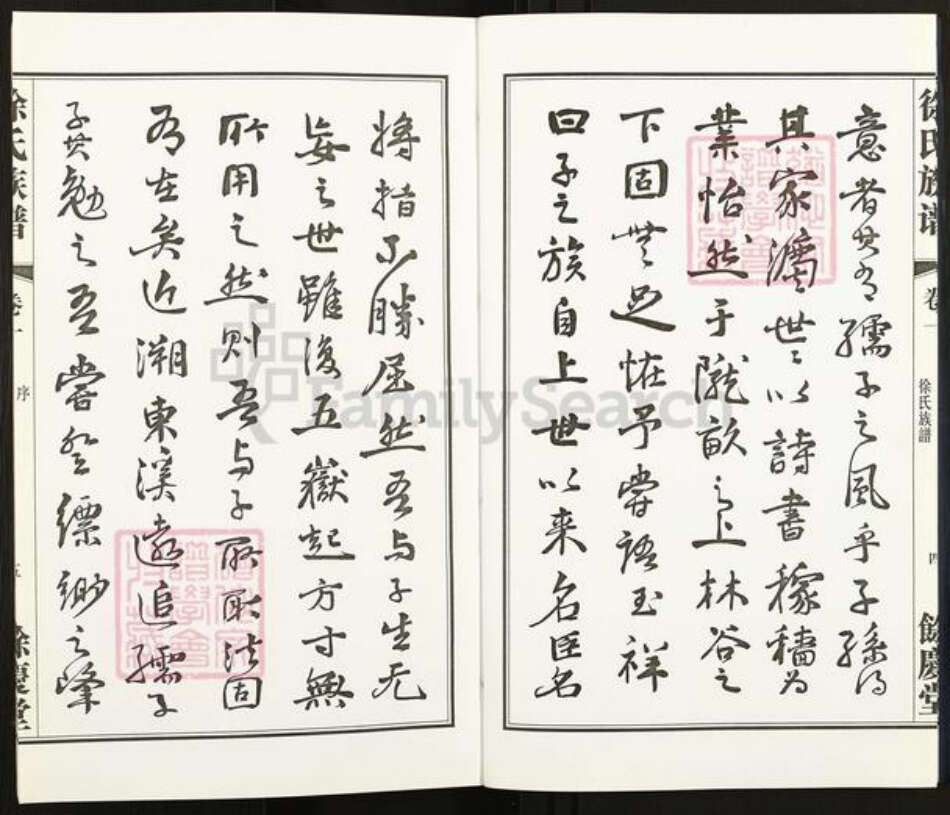 徐氏族譜
卷一
徐氏族譜
四
餘慶堂
意者其有孺子之風乎子孫得
其家濡世以詩書稼穡為
業怡然于隴畝之上林谷之
下固無足怪予嘗語玉祥
曰子之族自上世以來名臣名
將指不勝屈然吾與子生无
妄之世雖復五嶽起方寸無
所用之然則吾與子所取法固
有在矣近溯東溪遠追孺子
子其勉之吾嘗登縹緲之峰
徐氏族譜
卷一
序
五
餘慶堂
FamilySearch